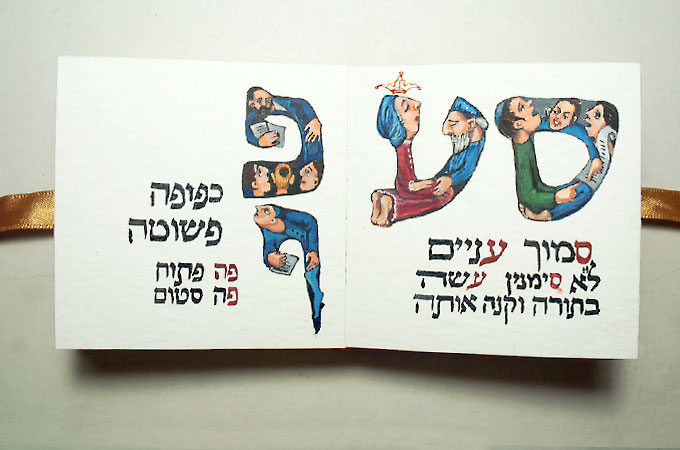 ס ע
סמוך עניים
ל״א סימנין עשה
בתורה וקנה אותה
פ
ף
כפופה
פשוטה
פה פתוח
פה סטום